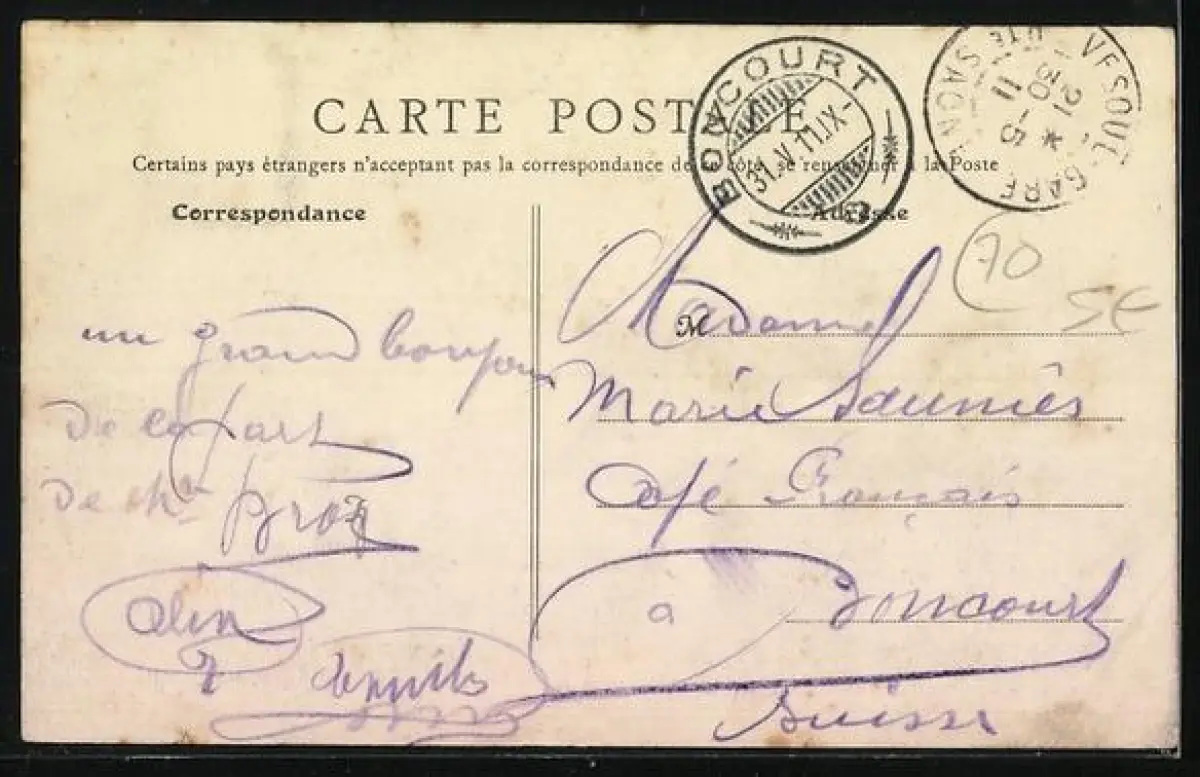 CARTE POSTALE
Certains pays étrangers n'acceptant pas la correspondance de ce côté, se renseigner à la Poste
BONCOURT
31.V 11.IX-
VESOUL-GARE
21 30
* 5
11
HTE SAONE
Correspondance
Adresse
70
5E
un grand bonjour
de la part
de Me Broz
M
Madame
Marie Sauniès
Café Français
à Boncourt
Suisse